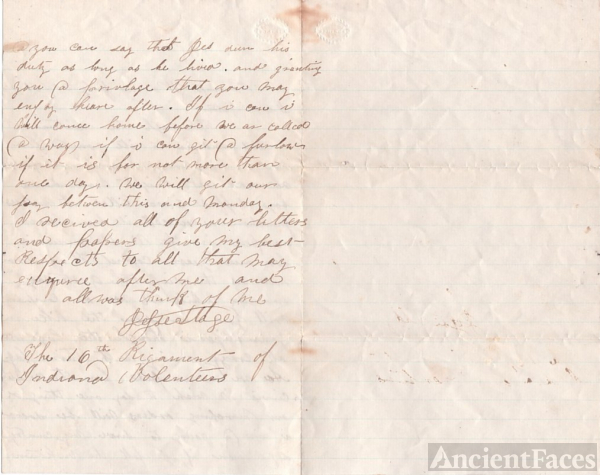 a you can say that Jes dun his
duty as long as he lived. and granting
you a privlage that you may
enjoy heare after. If i can i
will come home before we ar called
a way if i can git a furlow
if it is for not more than
one day. we will git our
pay between this and monday.
I recived all of your letters
and papers give my best
Respects to all that may
enquire after me and
allwas think of me
The 16th Regament of
Indiana Volenteers
AncientFaces